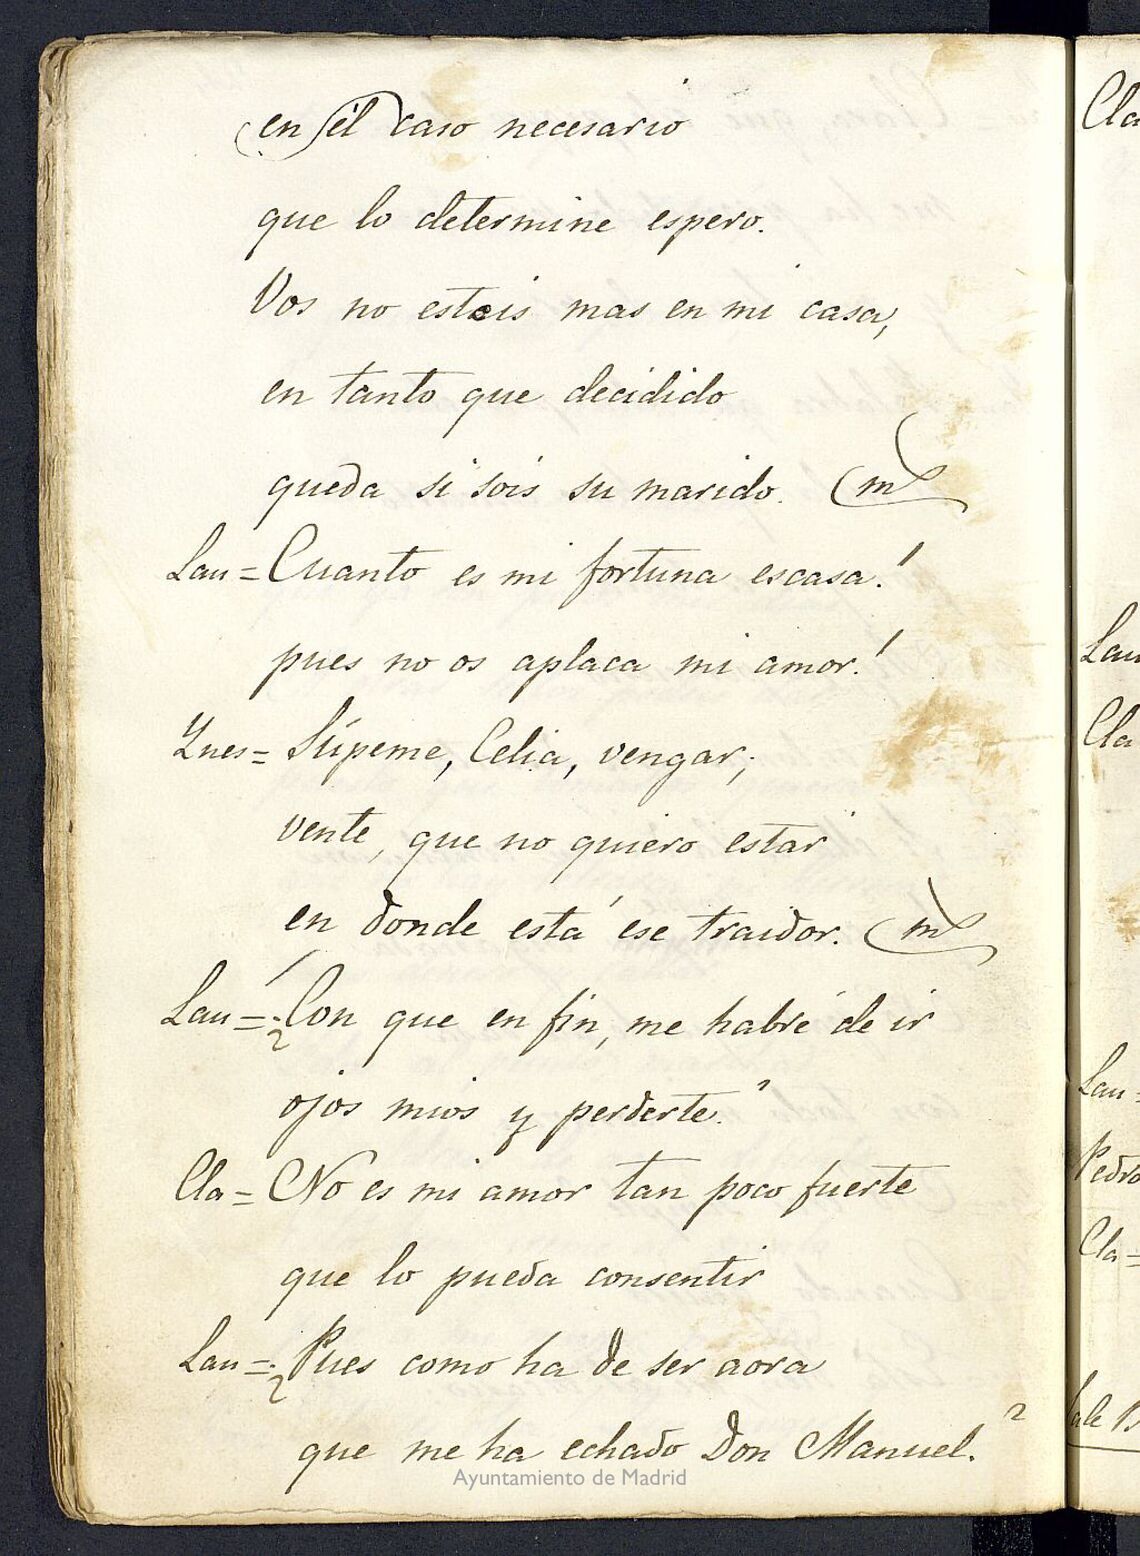 en él caso necesario
que lo determine espero.
Vos no esteis mas en mi casa,
en tanto que decidido
queda si sois su marido. (m
Lau = Cuanto es mi fortuna escasa!
pues no os aplaca mi amor!
Ynes = Súpeme, Celia, vengar;
vente, que no quiero estar
en donde está ese traidor. (m
Lau = ¿Con que en fin, me habré de ir
ojos mios y perderte?
Cla = No es mi amor tan poco fuerte
que lo pueda consentir
Lau = ¿Pues como ha de ser aora
que me ha echado Don Manuel?
Ayuntamiento de Madrid
Cla
Lau
Cla
Lau =
Pedro
Cla =